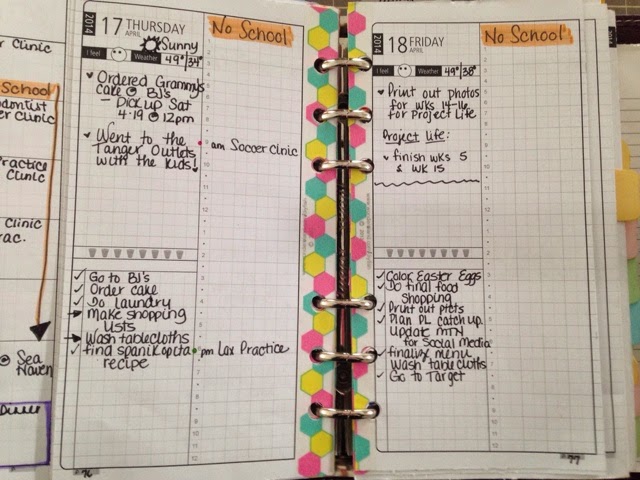 Clinic
School
Clinic
Practice
Clinic
Clinic
@ Sea
17 THURSDAY
APRIL
2014
Sunny
I feel
Weather
49° 34°
No School
Ordered Grammy's
cake @ BJ's
- Pick up Sat
4.19 @ 12pm
Went to the
Tanger Outlets
with the kids!
am Soccer Clinic
✓ Go to BJ's
✓ Order cake
✓ Do laundry
→ Make shopping
lists
→ Wash tablecloths
✓ Find spanikopita
recipe
pm Lax Practice
76
2014
18 FRIDAY
APRIL
I feel
Weather
49° 38°
No School
Print out photos
for wks 14-16
for Project Life
Project life:
finish wks 5
& wk 15
✓ Color Easter Eggs
✓ Do final food
shopping
✓ Print out picts
✓ Plan PL catch up
update MTN
for Social media
✓ finalize menu
Wash table cloths
✓ Go to Target
77
2014